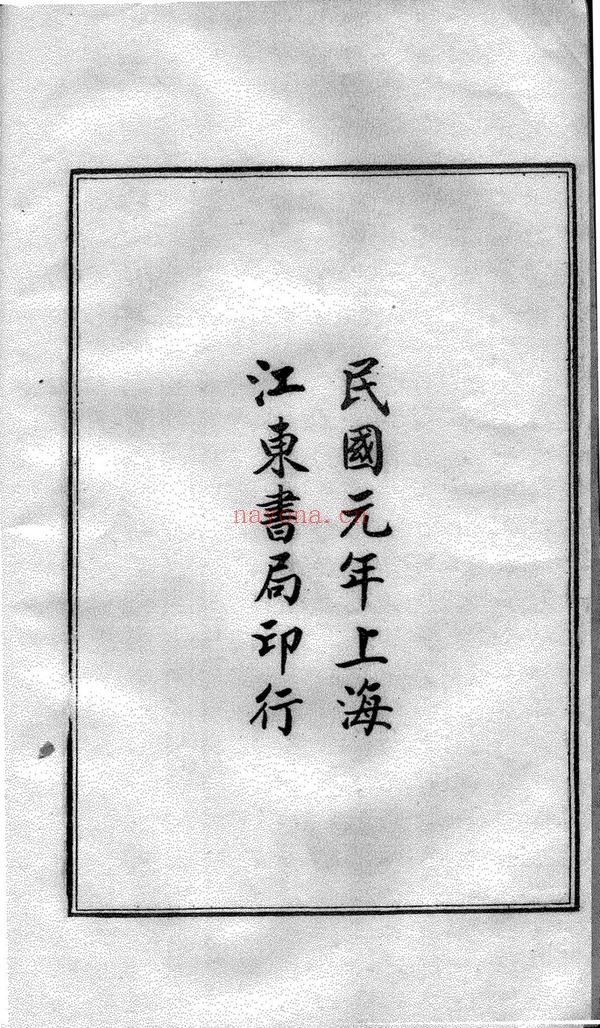 民國元年上海
江東書局印行
nayona.cn